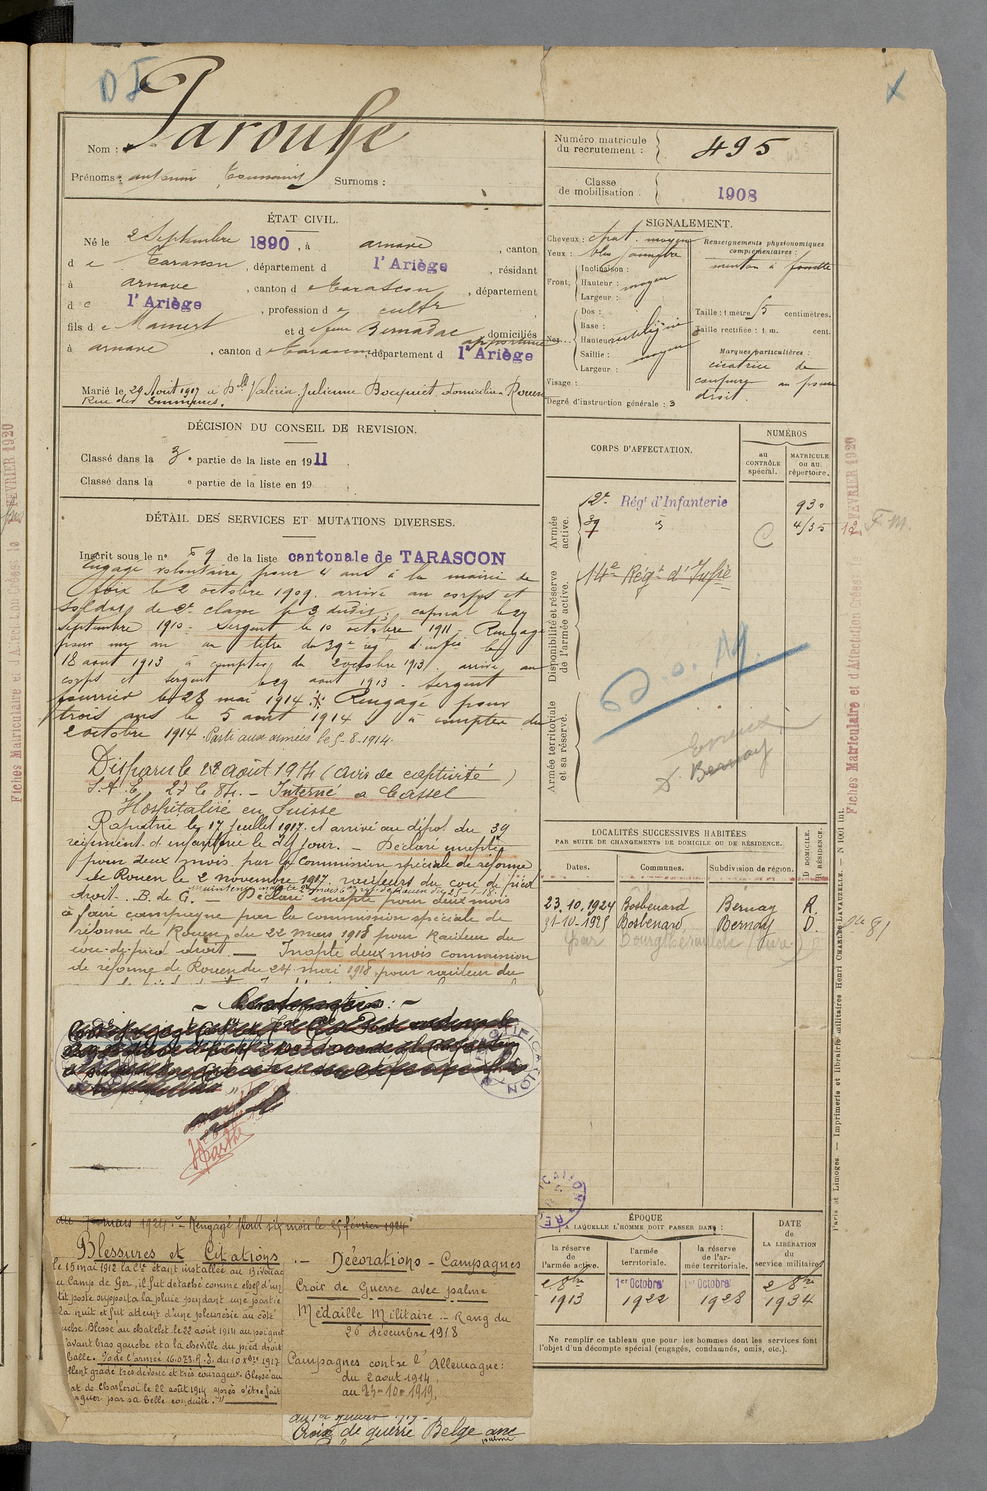 Nom : Paroube
Prénoms : Antonin Toussaint Surnoms :
ÉTAT CIVIL.
Né le 2 Septembre 1890, à Arnave, canton
de Tarascon, département d l'Ariège, résidant
à Arnave, canton de Tarascon, département
de l'Ariège, profession de cultr
fils de Mamert et de Bernadac, domiciliés
à Arnave, canton de Tarascon, département d l'Ariège
Marié le 29 Août 1917 à Dlle Valéria Julienne Bocquet, domiciliée à Rouen
Rue des
DÉCISION DU CONSEIL DE REVISION.
Classé dans la 3e partie de la liste en 1911
Classé dans la e partie de la liste en 19
DÉTAIL DES SERVICES ET MUTATIONS DIVERSES.
Inscrit sous le n° 59 de la liste cantonale de TARASCON
Engagé volontaire pour 4 ans à la mairie de
Foix le 2 octobre 1909. arrivé au corps et
soldat de 2e classe le 3 dudit; caporal le 27
septembre 1910. Sergent le 10 octobre 1911. Rengagé
pour un an au titre du 39e rég d'infie le
18 août 1913 à compter du 2 octobre 1913. arrivé au
corps et sergent le 29 août 1913. Sergent
fourrier le 28 mai 1914. Rengagé pour
trois ans le 5 août 1914 à compter du
2 octobre 1914. Parti aux armées le 5-8-1914.
Disparu le 22 août 1914 (avis de captivité)
Interné à Cassel
Hospitalisé en Suisse
Rapatrié le 17 juillet 1917. et arrivé au dépôt du 39
régiment d'infanterie le dit jour. — Déclaré inapte
pour deux mois par la Commission spéciale de réforme
de Rouen le 2 novembre 1917. raideur du cou de pied
droit. B. de G. — Déclaré inapte pour deux mois
à faire campagne par la commission spéciale de
réforme de Rouen du 22 mars 1918 pour raideur du
cou-de-pied droit. — Inapte deux mois commission
de réforme de Rouen du 24 mai 1918 pour raideur du
1924. — Rengagé pour six mois le 25 février 1924
Blessures et Citations
le 15 mai 1912 la Cie étant installée au Bivouac
au Camp de Ger, il fut détaché comme chef d'un
petit poste supporta la pluie pendant une partie
la nuit et fut atteint d'une pleurésie au côté
gauche. Blessé au chatelet le 22 août 1914 au poignet
avant bras gauche et à la cheville du pied droit
balle. O de l'armée 16.073. R.S. du 10 xbre 1917
Excellent gradé très dévoué et très courageux. Blessé au
combat de Charleroi le 22 août 1914 après s'être fait
remarquer par sa belle conduite."
Décorations - Campagnes
Croix de Guerre avec palme
Médaille Militaire — Rang du
20 décembre 1918
Campagnes contre l'Allemagne :
du 2 août 1914,
au 23-10-1919.
Croix de guerre Belge avec
palme
Numéro matricule du recrutement : 495
Classe de mobilisation : 1908
SIGNALEMENT.
Cheveux : chat. moyen
Yeux : bleu
Front, Inclinaison :
Hauteur : moyen
Largeur :
Nez... Dos :
Base :
Hauteur :
Saillie : moyen
Largeur :
Visage :
Degré d'instruction générale : 3
Renseignements physionomiques complémentaires :
menton à fossette
Taille : 1 mètre 55 centimètres.
Taille rectifiée : 1 m. cent.
Marques particulières :
cicatrice de
coupure au pouce
droit.
CORPS D'AFFECTATION.
NUMÉROS
au CONTRÔLE spécial.
MATRICULE ou au répertoire.
Armée active.
12e Régt d'Infanterie 930
39 4135
C
Disponibilité et réserve de l'armée active.
14e Régt d'Infie
Armée territoriale et sa réserve.
Evreux
D. Bernay
LOCALITÉS SUCCESSIVES HABITÉES
PAR SUITE DE CHANGEMENTS DE DOMICILE OU DE RÉSIDENCE.
Dates. Communes. Subdivision de région. D. DOMICILE. R. RÉSIDENCE.
23.10.1924 Bosbenard Bernay R.
31-10-1925 Bosbenard Bernay D.
par Bourgtheroulde (Eure)
ÉPOQUE
À LAQUELLE L'HOMME DOIT PASSER DANS :
la réserve de l'armée active.
l'armée territoriale.
la réserve de l'armée territoriale.
DATE DE LA LIBÉRATION du service militaire
2 8bre 1913
1er Octobre 1922
1er Octobre 1928
2 8bre 1934
Ne remplir ce tableau que pour les hommes dont les services font
l'objet d'un décompte spécial (engagés, condamnés, omis, etc.).
Fiches Matriculaire et d'Affectation Créées : 12 FÉVRIER 1920
F.M.
Paris et Limoges. — Imprimerie et librairie militaires Henri CHARLES-LAVAUZELLE.